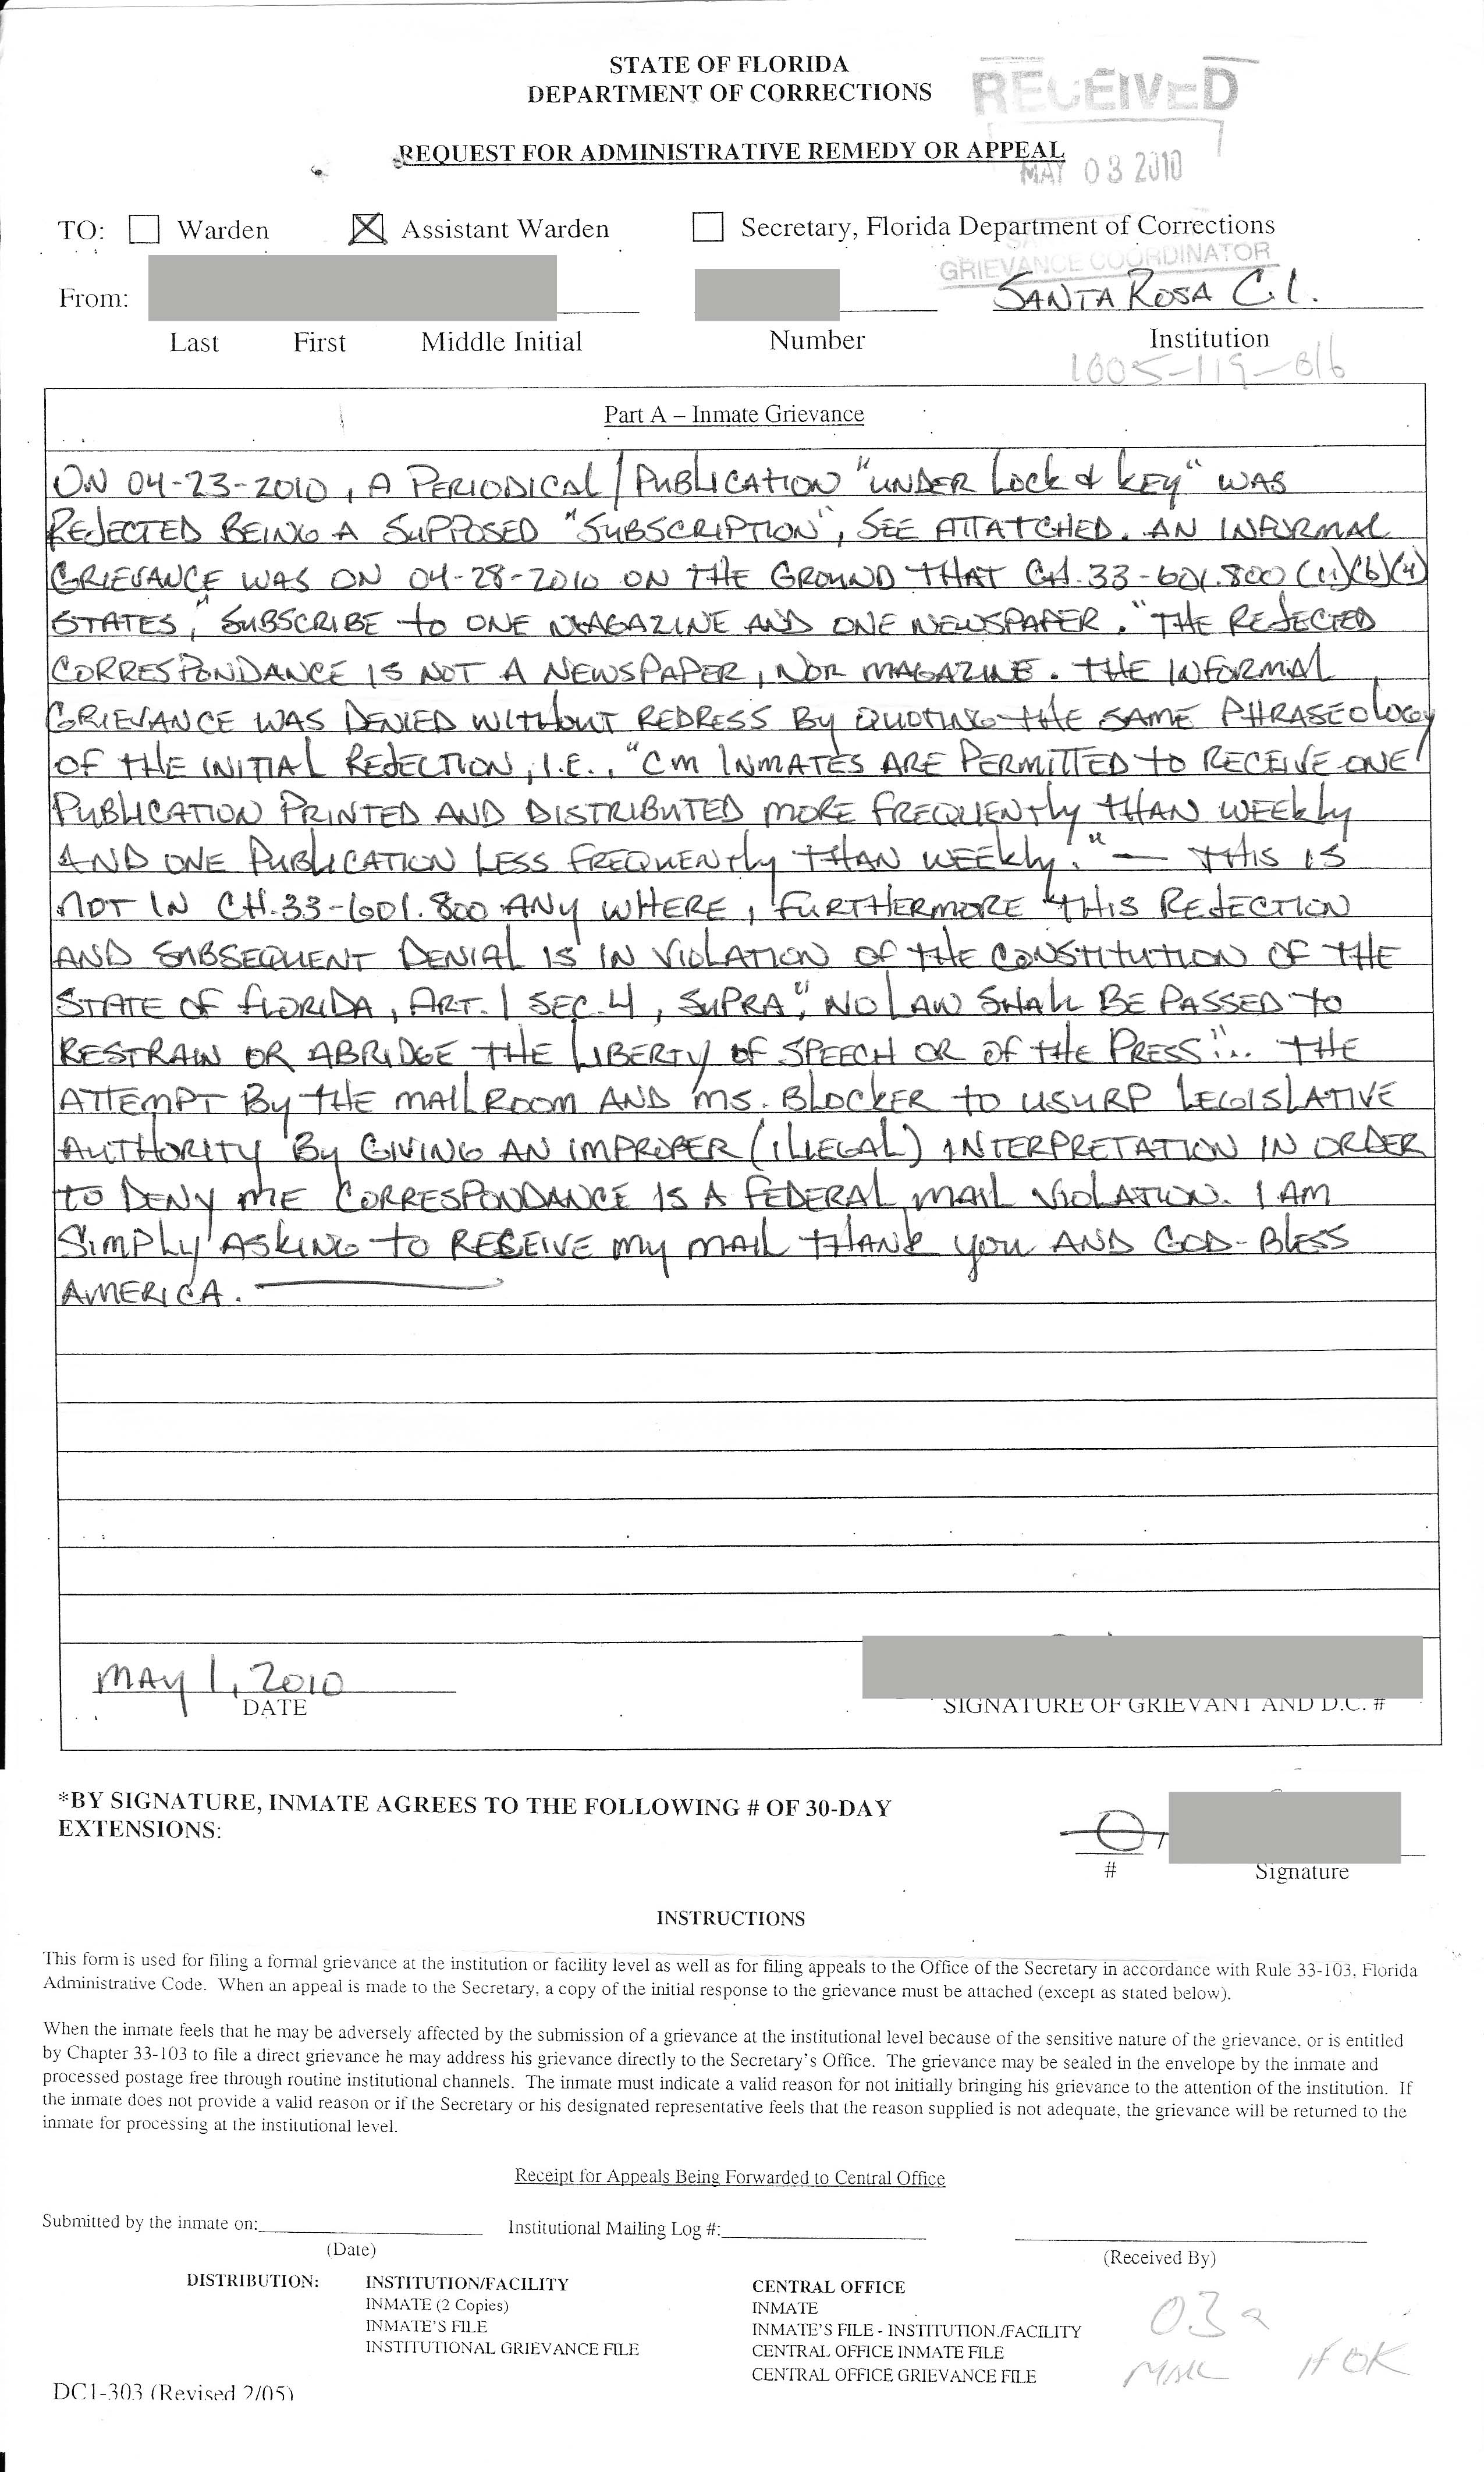 STATE OF FLORIDA
DEPARTMENT OF CORRECTIONS
RECEIVED
REQUEST FOR ADMINISTRATIVE REMEDY OR APPEAL
MAY 03 2010
TO: Warden Assistant Warden Secretary, Florida Department of Corrections
GRIEVANCE COORDINATOR
From: SANTA ROSA C.I.
Last First Middle Initial Number Institution
1005-119-016
Part A – Inmate Grievance
ON 04-23-2010, A PERIODICAL/PUBLICATION "UNDER Lock & KEY" WAS
REJECTED BEING A SUPPOSED "SUBSCRIPTION", SEE ATTATCHED. AN INFORMAL
GRIEVANCE WAS ON 04-28-2010 ON THE GROUND THAT CH. 33-601.800 (11)(b)(4)
STATES, "SUBSCRIBE to ONE MAGAZINE AND ONE NEWSPAPER." THE REJECTED
CORRESPONDANCE IS NOT A NEWSPAPER, NOR MAGAZINE. THE INFORMAL
GRIEVANCE WAS DENIED WITHOUT REDRESS By QUOTING THE SAME PHRASEOLOGY
OF THE INITIAL REJECTION, I.E., "CM INMATES ARE PERMITTED to RECEIVE ONE
PUBLICATION PRINTED AND DISTRIBUTED MORE FREQUENTLY THAN WEEKLY
AND ONE PUBLICATION LESS FREQUENTLY THAN WEEKLY." — THIS IS
NOT IN CH. 33-601.800 ANY WHERE, FURTHERMORE THIS REJECTION
AND SUBSEQUENT DENIAL IS IN VIOLATION OF THE CONSTITUTION OF THE
STATE OF FLORIDA, ART. 1 SEC. 4, SUPRA, "NO LAW SHALL BE PASSED TO
RESTRAIN OR ABRIDGE THE LIBERTY OF SPEECH OR OF THE PRESS"... THE
ATTEMPT By THE MAILROOM AND MS. BLOCKER to USURP LEGISLATIVE
AUTHORITY By GIVING AN IMPROPER (ILLEGAL) INTERPRETATION IN ORDER
to DENY ME CORRESPONDANCE IS A FEDERAL MAIL VIOLATION. I AM
SIMPLY ASKING to RECEIVE MY MAIL THANK you AND GOD-BLESS
AMERICA.
MAY 1, 2010
DATE SIGNATURE OF GRIEVANT AND D.C. #
*BY SIGNATURE, INMATE AGREES TO THE FOLLOWING # OF 30-DAY
EXTENSIONS: 0
# Signature
INSTRUCTIONS
This form is used for filing a formal grievance at the institution or facility level as well as for filing appeals to the Office of the Secretary in accordance with Rule 33-103, Florida
Administrative Code. When an appeal is made to the Secretary, a copy of the initial response to the grievance must be attached (except as stated below).
When the inmate feels that he may be adversely affected by the submission of a grievance at the institutional level because of the sensitive nature of the grievance, or is entitled
by Chapter 33-103 to file a direct grievance he may address his grievance directly to the Secretary's Office. The grievance may be sealed in the envelope by the inmate and
processed postage free through routine institutional channels. The inmate must indicate a valid reason for not initially bringing his grievance to the attention of the institution. If
the inmate does not provide a valid reason or if the Secretary or his designated representative feels that the reason supplied is not adequate, the grievance will be returned to the
inmate for processing at the institutional level.
Receipt for Appeals Being Forwarded to Central Office
Submitted by the inmate on: Institutional Mailing Log #:
(Date) (Received By)
DISTRIBUTION: INSTITUTION/FACILITY CENTRAL OFFICE
INMATE (2 Copies) INMATE
INMATE'S FILE INMATE'S FILE - INSTITUTION./FACILITY
INSTITUTIONAL GRIEVANCE FILE CENTRAL OFFICE INMATE FILE
CENTRAL OFFICE GRIEVANCE FILE
03a
DC1-303 (Revised 2/05)